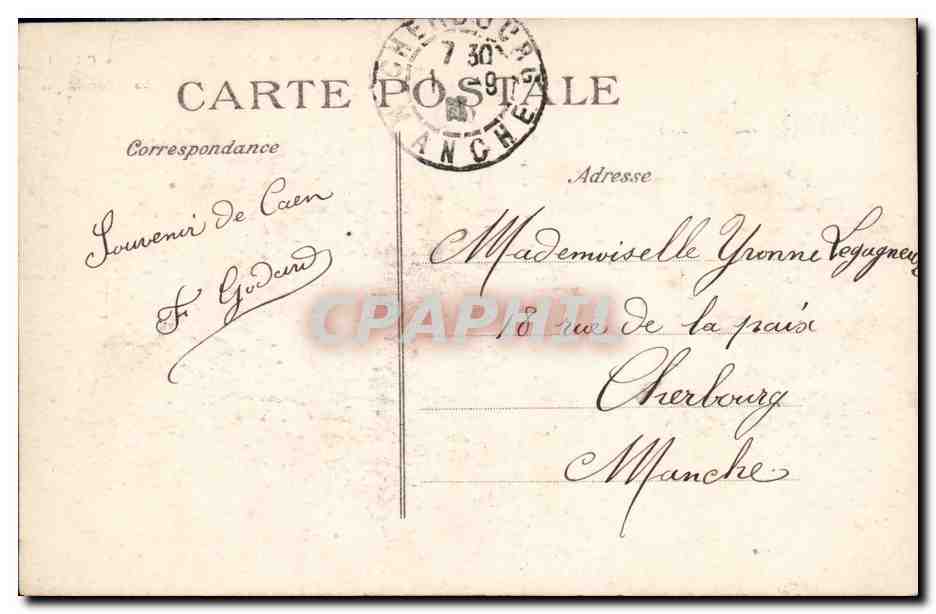 CHERBOURG
7 30
1 -9
MANCHE
CARTE POSTALE
Correspondance
Adresse
Souvenir de Caen
F Godard
Mademoiselle Yvonne Legagneux
18 rue de la paix
Cherbourg
Manche
CPAPHIL